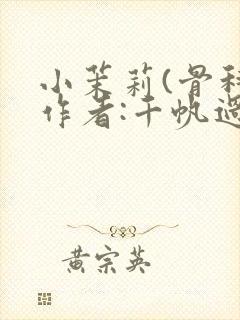 小茉莉(骨科
作者:千帆過
黄宗英